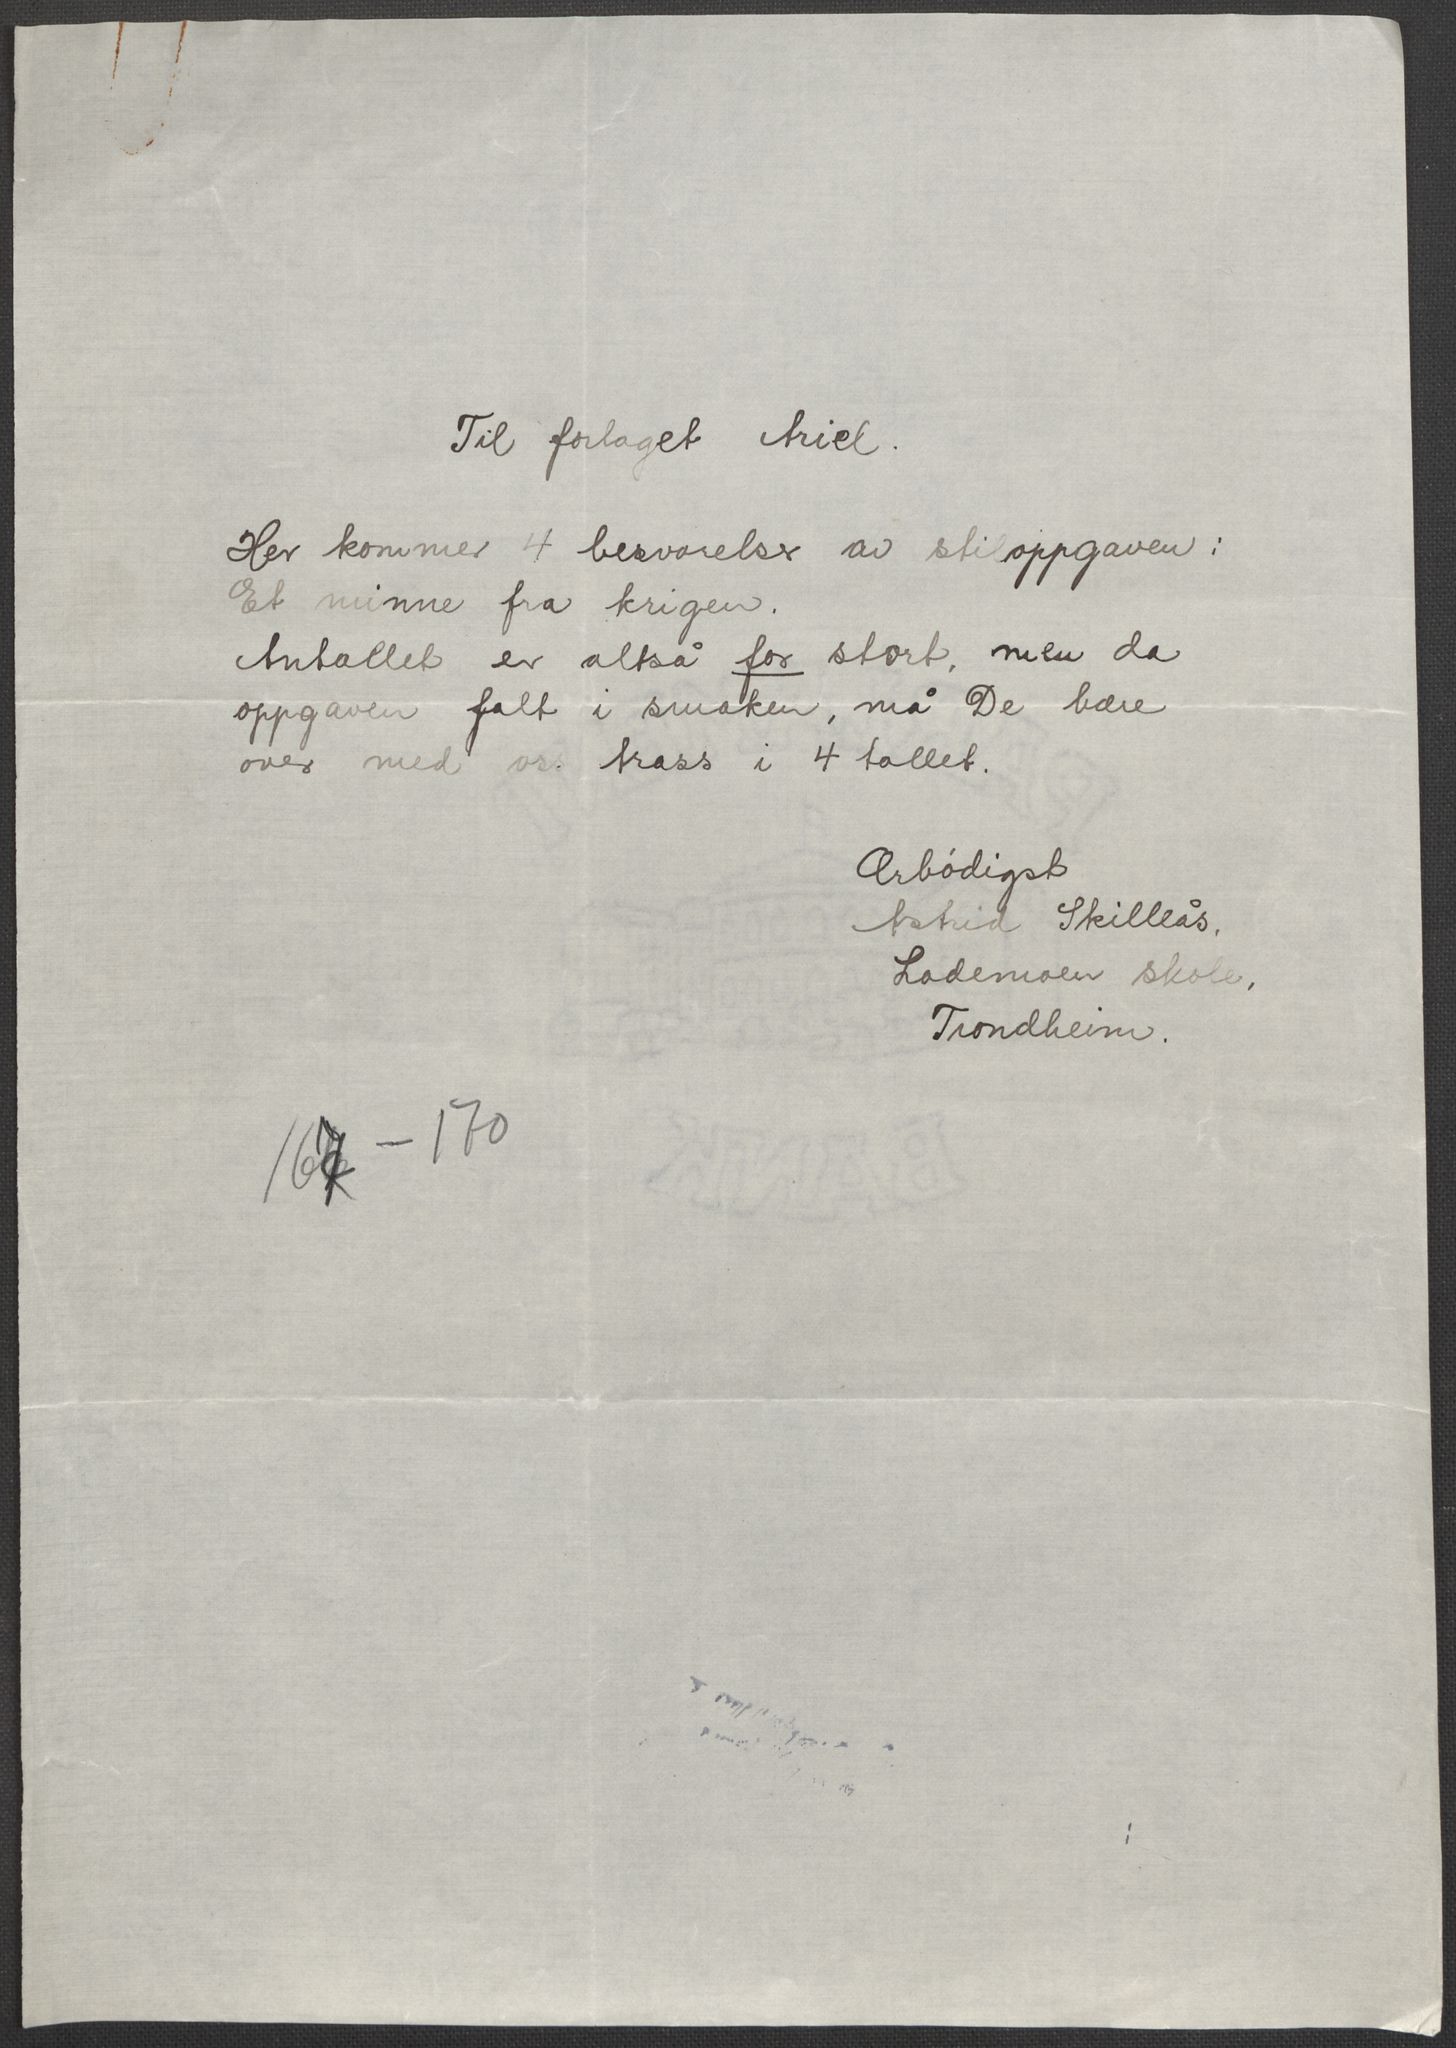 Til forlaget Ariel.
Her kommer 4 besvarelser av stiloppgaven:
Et minne fra krigen.
Antallet er altså for stort, men da
oppgaven falt i smaken, må De bære
over med oss trass i 4 tallet.
Ærbødigst
Astrid Skilleås,
Lademoen skole,
Trondheim.
167 – 170